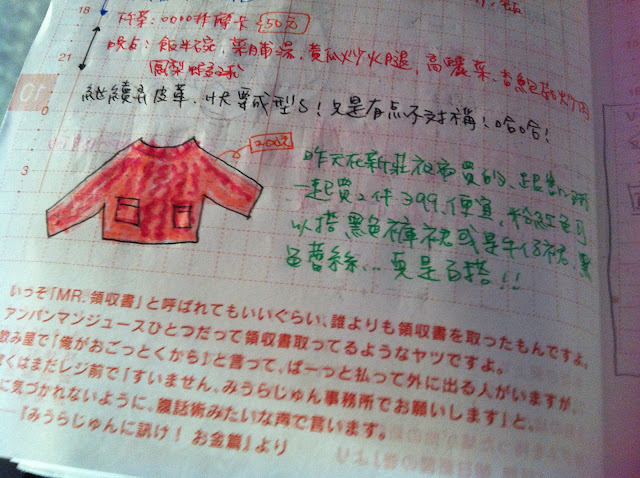 18
下午茶: 摩卡 50元
21
晚点: 飯半碗, 菜脯湯, 黄瓜炒火腿, 高麗菜,
鳳梨
繼續弄皮革, 快要成型了! 只是有点不对稱! 哈哈!
0
200元
3
昨天在新莊夜市買的、
一起買2件399、便宜、
以搭黑色褲裙或是牛仔裙、黑
色蕾絲... 真是百搭!!
いっそ「MR.領収書」と呼ばれてもいいぐらい、誰よりも領収書を取ったもんですよ。
アンパンマンジュースひとつだって領収書取ってるようなヤツですよ。
飲み屋で「俺がおごっとくから」と言って、ぱーっと払って外に出る人がいますが、
くはまだレジ前で「すいません、みうらじゅん事務所でお願いします」と、
に気づかれないように、腹話術みたいな声で言います。
――『みうらじゅんに訊け! お金篇』より